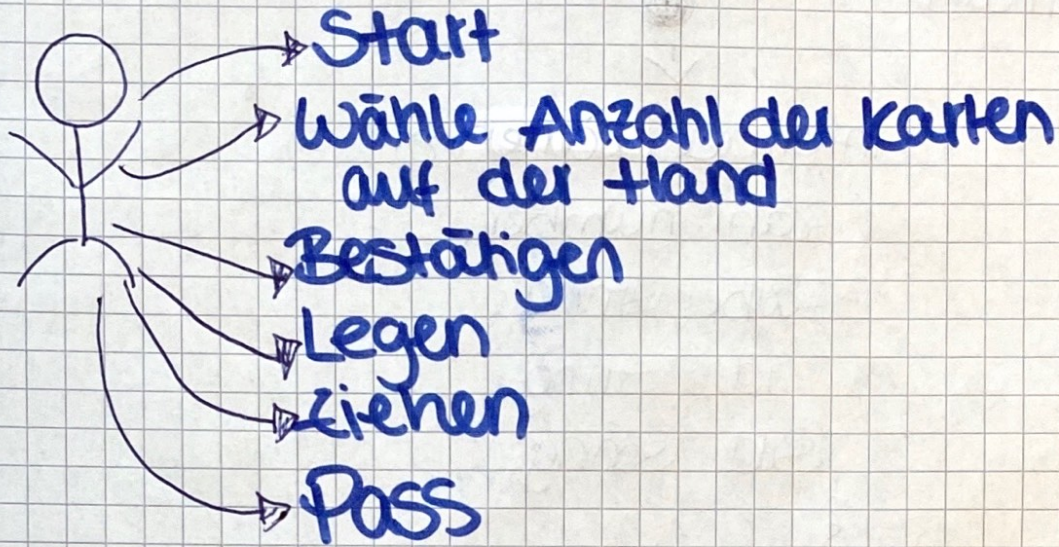 Start
Wähle Anzahl der Karten
auf der Hand
Bestätigen
Legen
Ziehen
Pass